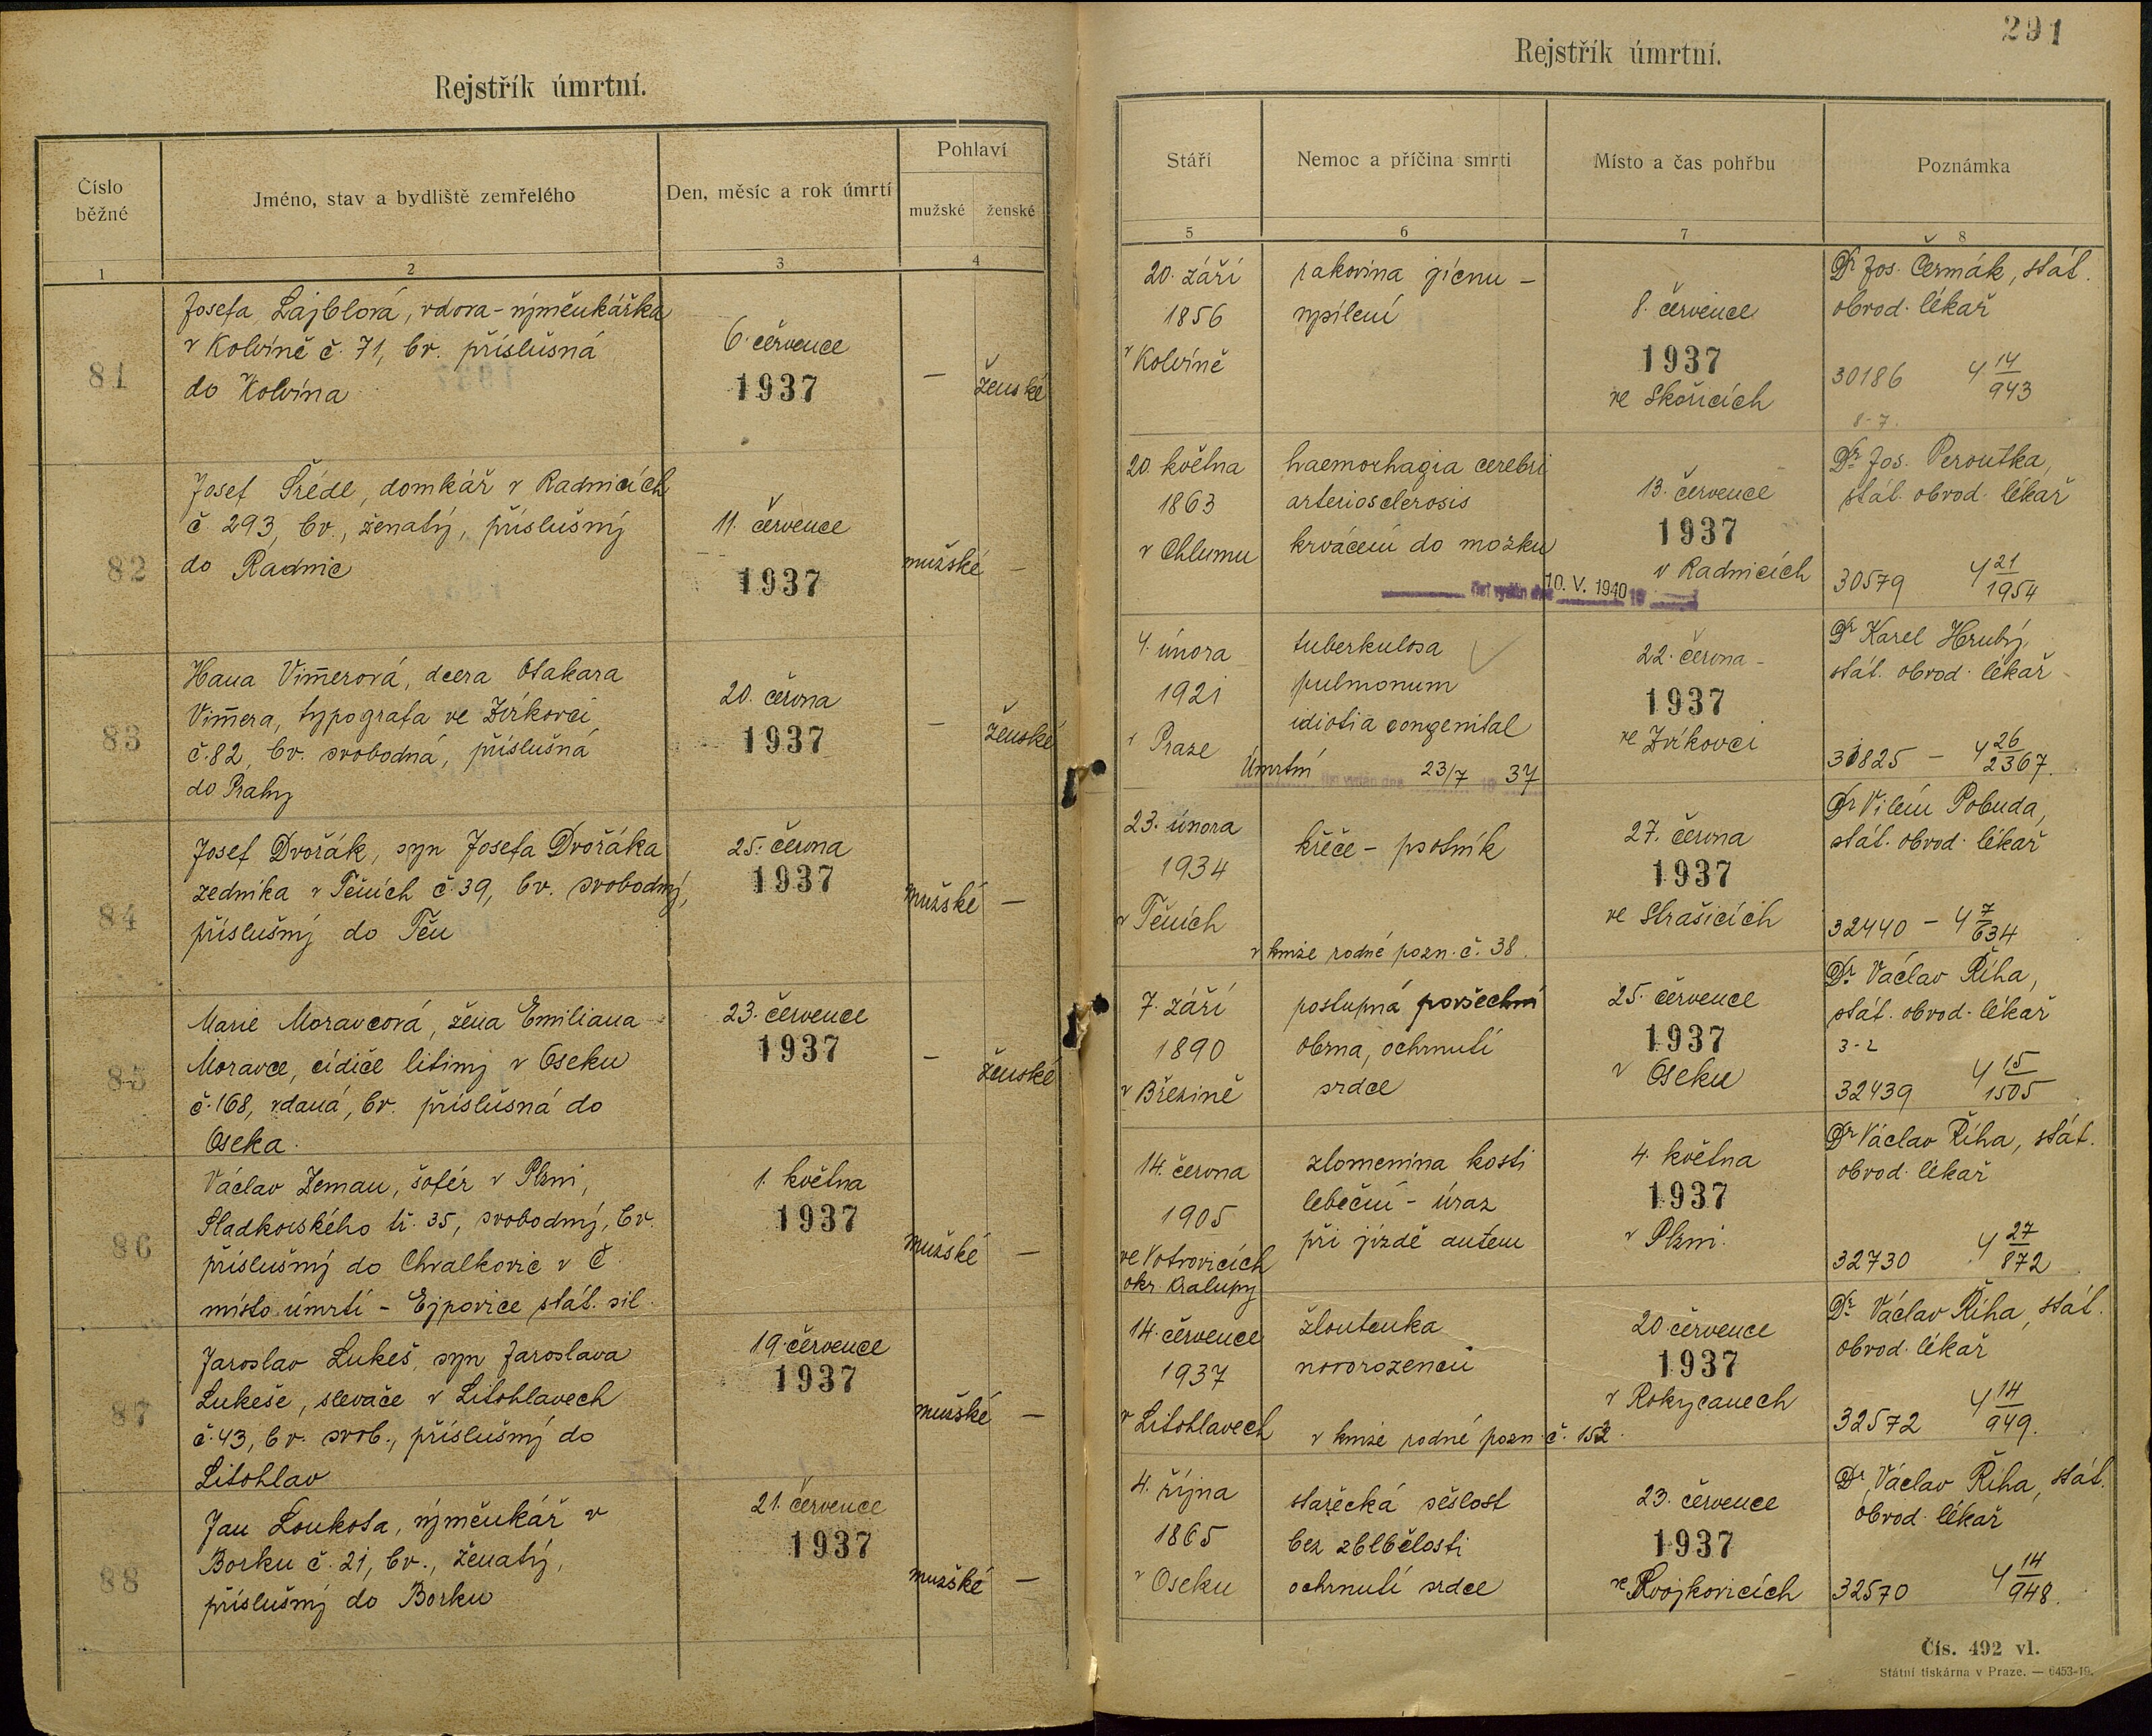 Rejstřík úmrtní.
Číslo běžné
Jméno, stav a bydliště zemřelého
Den, měsíc a rok úmrtí
Pohlaví
mužské
ženské
1
2
3
4
81
Josefa Lajblová, vdova - výměnkářka
v Kolvíně č. 71, bv. příslušná
do Kolvína
6. července
1937
—
ženské
82
Josef Šrédl, domkář v Radnicích
č 293, bv., ženatý, příslušný
do Radnic
11. července
1937
mužské
—
83
Hana Vim̄erová, dcera Otakara
Vim̄era, typografa ve Zvíkovci
č.82, bv. svobodná, příslušná
do Prahy
20. června
1937
—
ženské
84
Josef Dvořák, syn Josefa Dvořáka
zedníka v Těních č.39, bv. svobodný,
příslušný do Těn
25. června
1937
mužské
—
85
Marie Moravcová, žena Emiliana
Moravce, cídiče litiny v Oseku
č.168, vdaná, bv. příslušná do
Oseka.
23. července
1937
—
ženské
86
Václav Zeman, šofér v Plzni,
Sladkovského tř. 35, svobodný, bv.
příslušný do Chvalkovic v Č.
místo úmrtí - Ejpovice stát. sil.
1. května
1937
mužské
—
87
Jaroslav Lukeš, syn Jaroslava
Lukeše, slevače v Litohlavech
č.43, bv. svob., příslušný do
Litohlav
19. července
1937
mužské
—
88
Jan Loukota, výměnkář v
Borku č. 21, bv., ženatý,
příslušný do Borku
21. července
1937
mužské
—
291
Rejstřík úmrtní.
Stáří
Nemoc a příčina smrti
Místo a čas pohřbu
Poznámka
5
6
7
8
20. září
1856
v Kolvíně
rakovina jícnu -
vysílení
8. července
1937
ve Skořicích
Dr Jos. Čermák, stát.
obvod. lékař
30186 4 14/943
8-7.
20. května
1863
v Chlumu
haemorhagia cerebri
arteriosclerosis
krvácení do mozku
13. července
1937
v Radnicích
10. V. 1940
Dr. Jos. Peroutka,
stát. obvod. lékař
30579 4 21/1954
4. února
1921
v Praze
tuberkulosa
pulmonum
idiotia congenital
Úmrtní list vydán dne 23/7 19 37
22. června
1937
ve Zvíkovci
Dr Karel Hrubý,
stát. obvod. lékař
31825 - 4 26/2367.
23. února
1934
v Těních
křeče - psotník
v knize rodné pozn. č. 38.
27. června
1937
ve Strašicích
Dr Vilém Pobuda,
stát. obvod. lékař
32440 - 4 7/634
7. září
1890
v Březině
postupná povšechná
obrna, ochrnutí
srdce
25. července
1937
v Oseku
Dr. Václav Říha,
stát. obvod. lékař
3-2
32439 4 15/1505
14. června
1905
ve Votvovicích
okr. Kralupy
zlomenina kosti
lebeční - úraz
při jízdě autem
4. května
1937
v Plzni.
Dr Václav Říha, stát.
obvod. lékař
32730 4 27/872
14. července
1937
v Litohlavech
žloutenka
novorozenců
v knize rodné pozn. č. 152.
20. července
1937
v Rokycanech
Dr. Václav Říha, stát.
obvod. lékař
32572 4 14/949.
4. října
1865
v Oseku
stařecká sešlost
bez zblbělosti
ochrnutí srdce
23. července
1937
ve Vojkovicích
Dr. Václav Říha, stát.
obvod. lékař
32570 4 14/948.
Čís. 492 vl.
Státní tiskárna v Praze. — 6453-19.